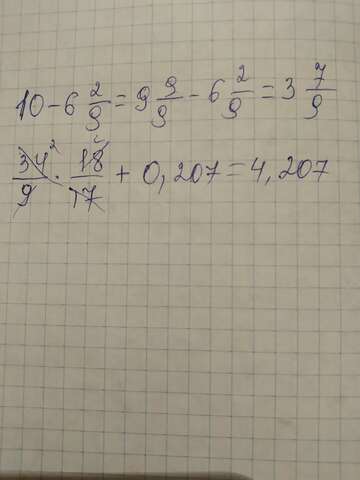 10 - 6 2/9 = 9 9/9 - 6 2/9 = 3 7/9
34/9 2 · 18/17 2 + 0,207 = 4,207